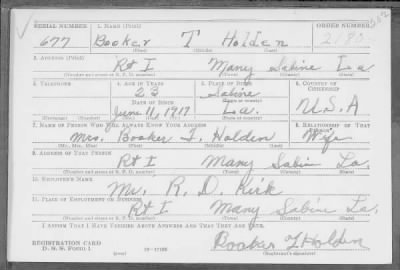 SERIAL NUMBER 1. NAME (Print) ORDER NUMBER
677 Booker T Holden
(First) (Middle) (Last)
2. ADDRESS (Print)
Rt 1 Many Sabine La
(Number and street or R. F. D. number) (Town) (County) (State)
3. TELEPHONE 4. AGE IN YEARS 5. PLACE OF BIRTH 6. COUNTRY OF CITIZENSHIP
23 Sabine
DATE OF BIRTH (Town or county)
June 11, 1917 La. U.S.A
(Exchange) (Number) (Mo.) (Day) (Yr.) (State or country)
7. NAME OF PERSON WHO WILL ALWAYS KNOW YOUR ADDRESS 8. RELATIONSHIP OF THAT PERSON
Mrs. Booker T. Holden Wife
(Mr., Mrs., Miss) (First) (Middle) (Last)
9. ADDRESS OF THAT PERSON
Rt 1 Many Sabin La.
(Number and street or R. F. D. number) (Town) (County) (State)
10. EMPLOYER'S NAME
Mr. R. D. Kirk
11. PLACE OF EMPLOYMENT OR BUSINESS
Rt 1 Many Sabine La.
(Number and street or R. F. D. number) (Town) (County) (State)
I AFFIRM THAT I HAVE VERIFIED ABOVE ANSWERS AND THAT THEY ARE TRUE.
REGISTRATION CARD
D. S. S. Form 1
Booker T Holden
(Registrant's signature)